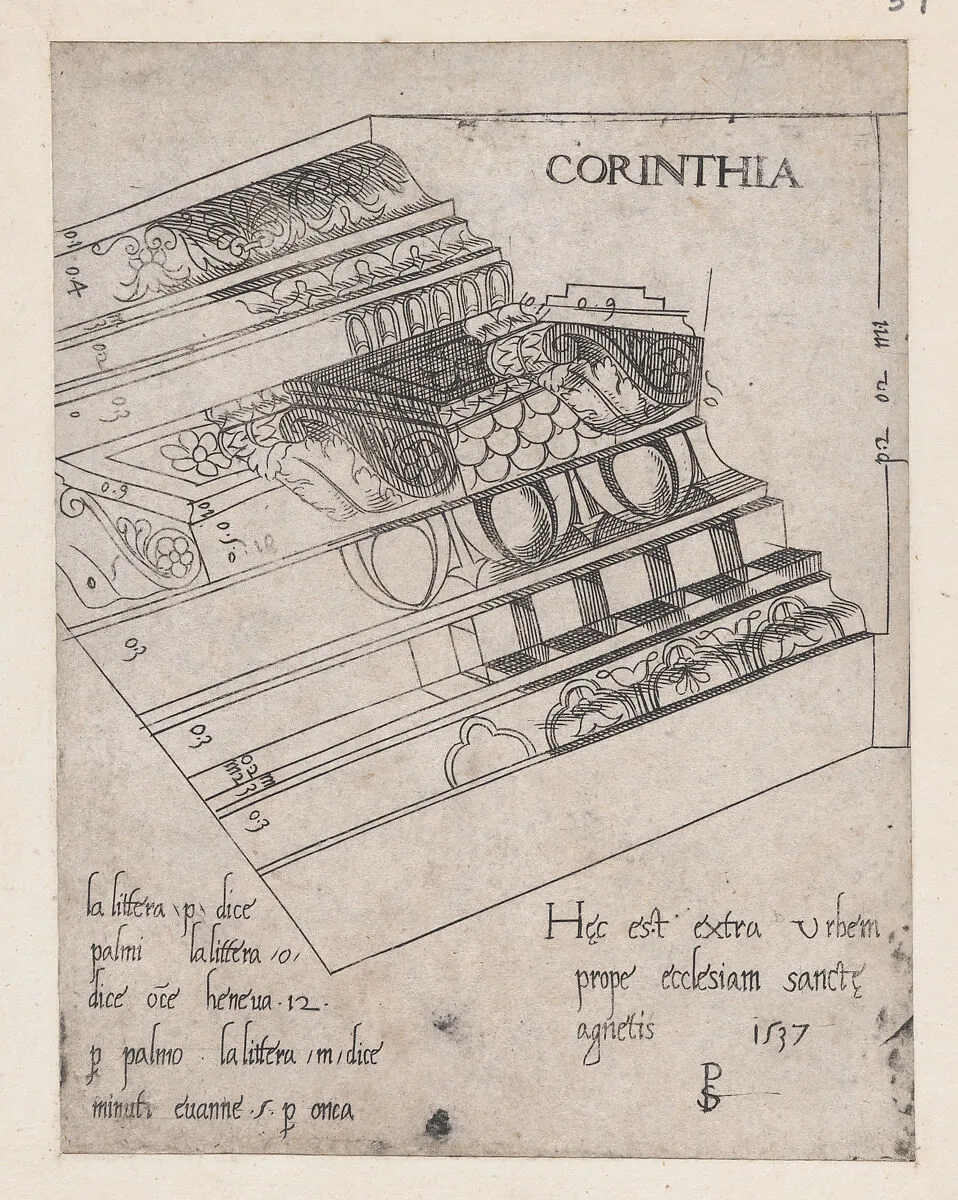 CORINTHIA
0.1
0.4
m3
0.2
0.3
0
0.9
0.9
0.5
0.5.0
0.3
0.3
0.2 m
m2 3
0.3
p:2 02 m1
la littera p dice
palmi la littera /o/
dice oc̄e heneua · 12 ·
p̱ palmo · la littera /m/ dice
minuti euanne · 5 · p̱ onca
Hęc est extra Vrbem
prope ecclesiam sanctę
agnetis 1537
PS